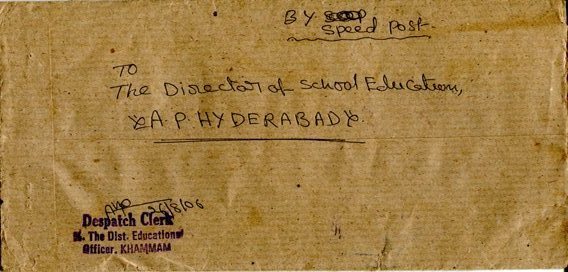 BY
Speed Post
To
The Director of School Education,
A.P. HYDERABAD
26/8/06
Despatch Clerk
The Dist. Educational
Officer. KHAMMAM